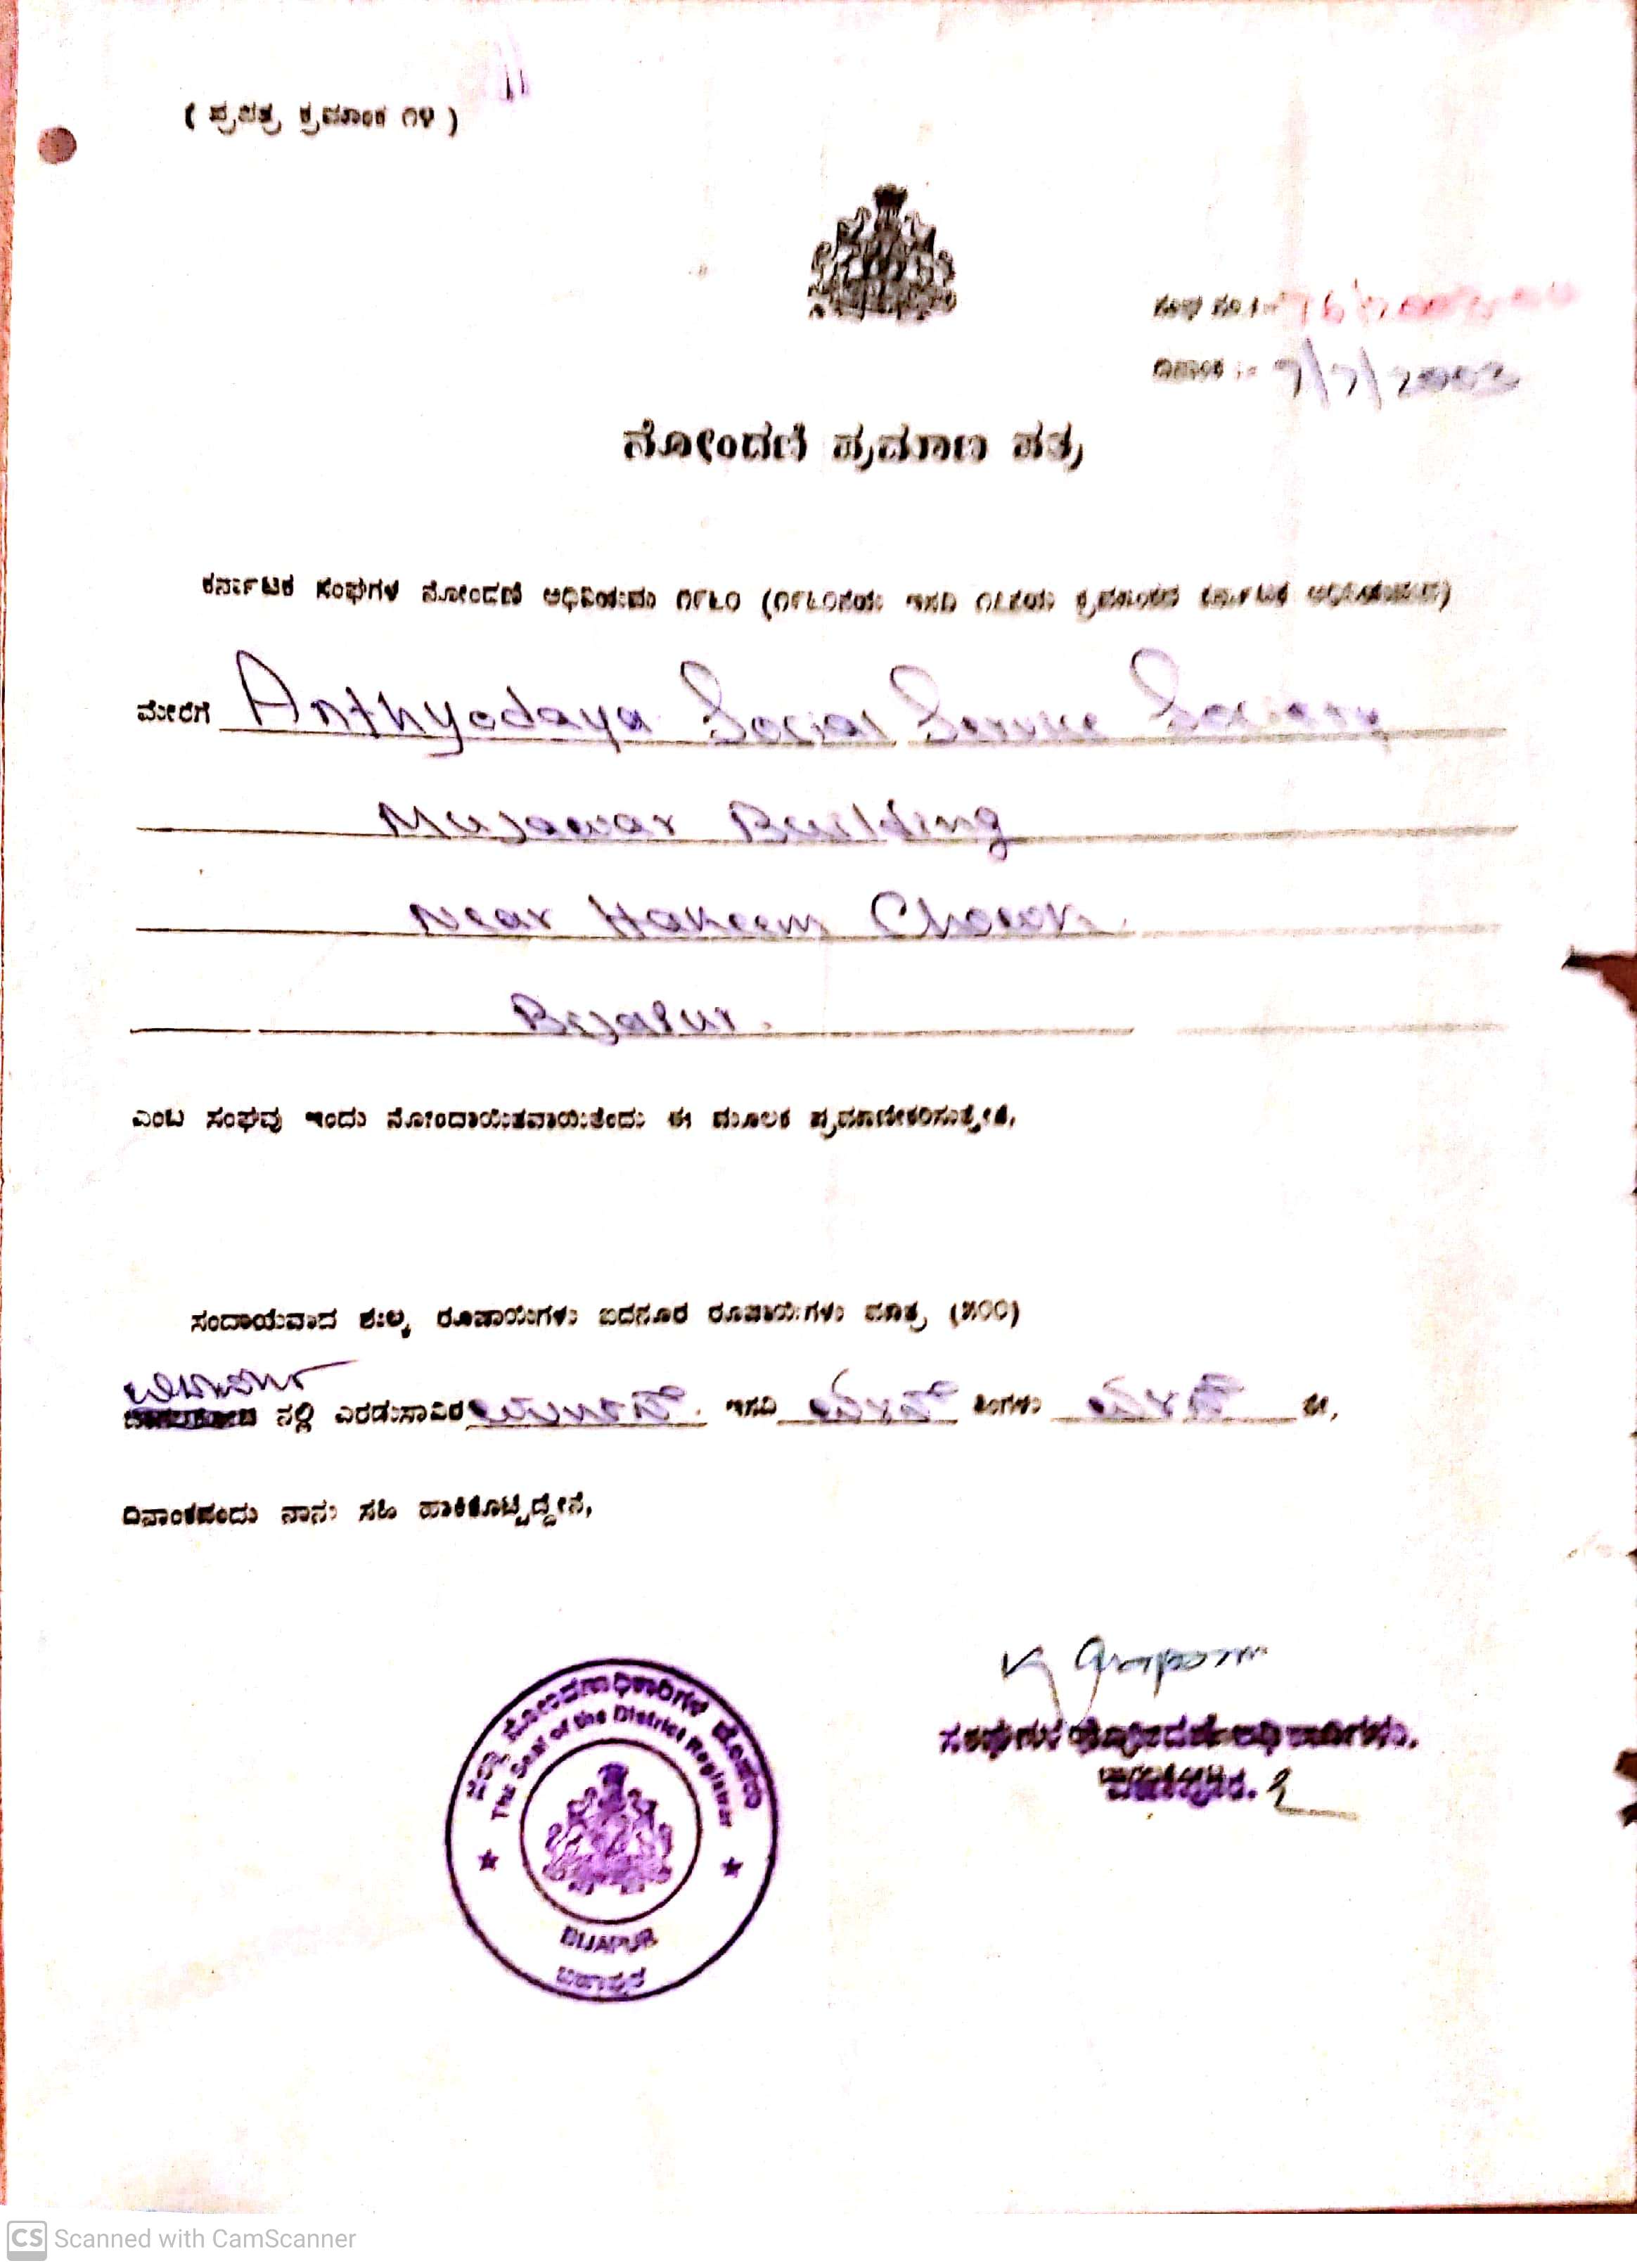 ( ಪ್ರಪತ್ರ ಕ್ರಮಾಂಕ ೧೪ )
ಸಂಘ ಸಂ:-
ದಿನಾಂಕ :- 7/7/2003
ನೋಂದಣಿ ಪ್ರಮಾಣ ಪತ್ರ
ಕರ್ನಾಟಕ ಸಂಘಗಳ ನೋಂದಣಿ ಅಧಿನಿಯಮ ೧೯೬೦ (೧೯೬೦ನೆಯ ಇಸವಿ ೧೭ನೆಯ ಕ್ರಮಾಂಕದ ಕರ್ನಾಟಕ ಅಧಿನಿಯಮದ)
ಮೇರೆಗೆ Anthyodaya Social Service Society
Mujawar Building
Near Hakeem Chowk.
Bijapur.
ಎಂಬ ಸಂಘವು ಇಂದು ನೋಂದಾಯಿತವಾಯಿತೆಂದು ಈ ಮೂಲಕ ಪ್ರಮಾಣೀಕರಿಸುತ್ತೇನೆ.
ಸಂದಾಯವಾದ ಶುಲ್ಕ ರೂಪಾಯಿಗಳು ಐದನೂರ ರೂಪಾಯಿಗಳು ಮಾತ್ರ (೫೦೦)
ನಲ್ಲಿ ಎರಡುಸಾವಿರ ಇಸವಿ ತಿಂಗಳು ನೇ,
ದಿನಾಂಕದಂದು ನಾನು ಸಹಿ ಹಾಕಿಕೊಟ್ಟಿದ್ದೇನೆ.
ಜಿಲ್ಲಾ ನೋಂದಣಾಧಿಕಾರಿಗಳ ಮೊಹರು
The Seal of the District Registrar
BIJAPUR
ಬಿಜಾಪುರ
CS Scanned with CamScanner